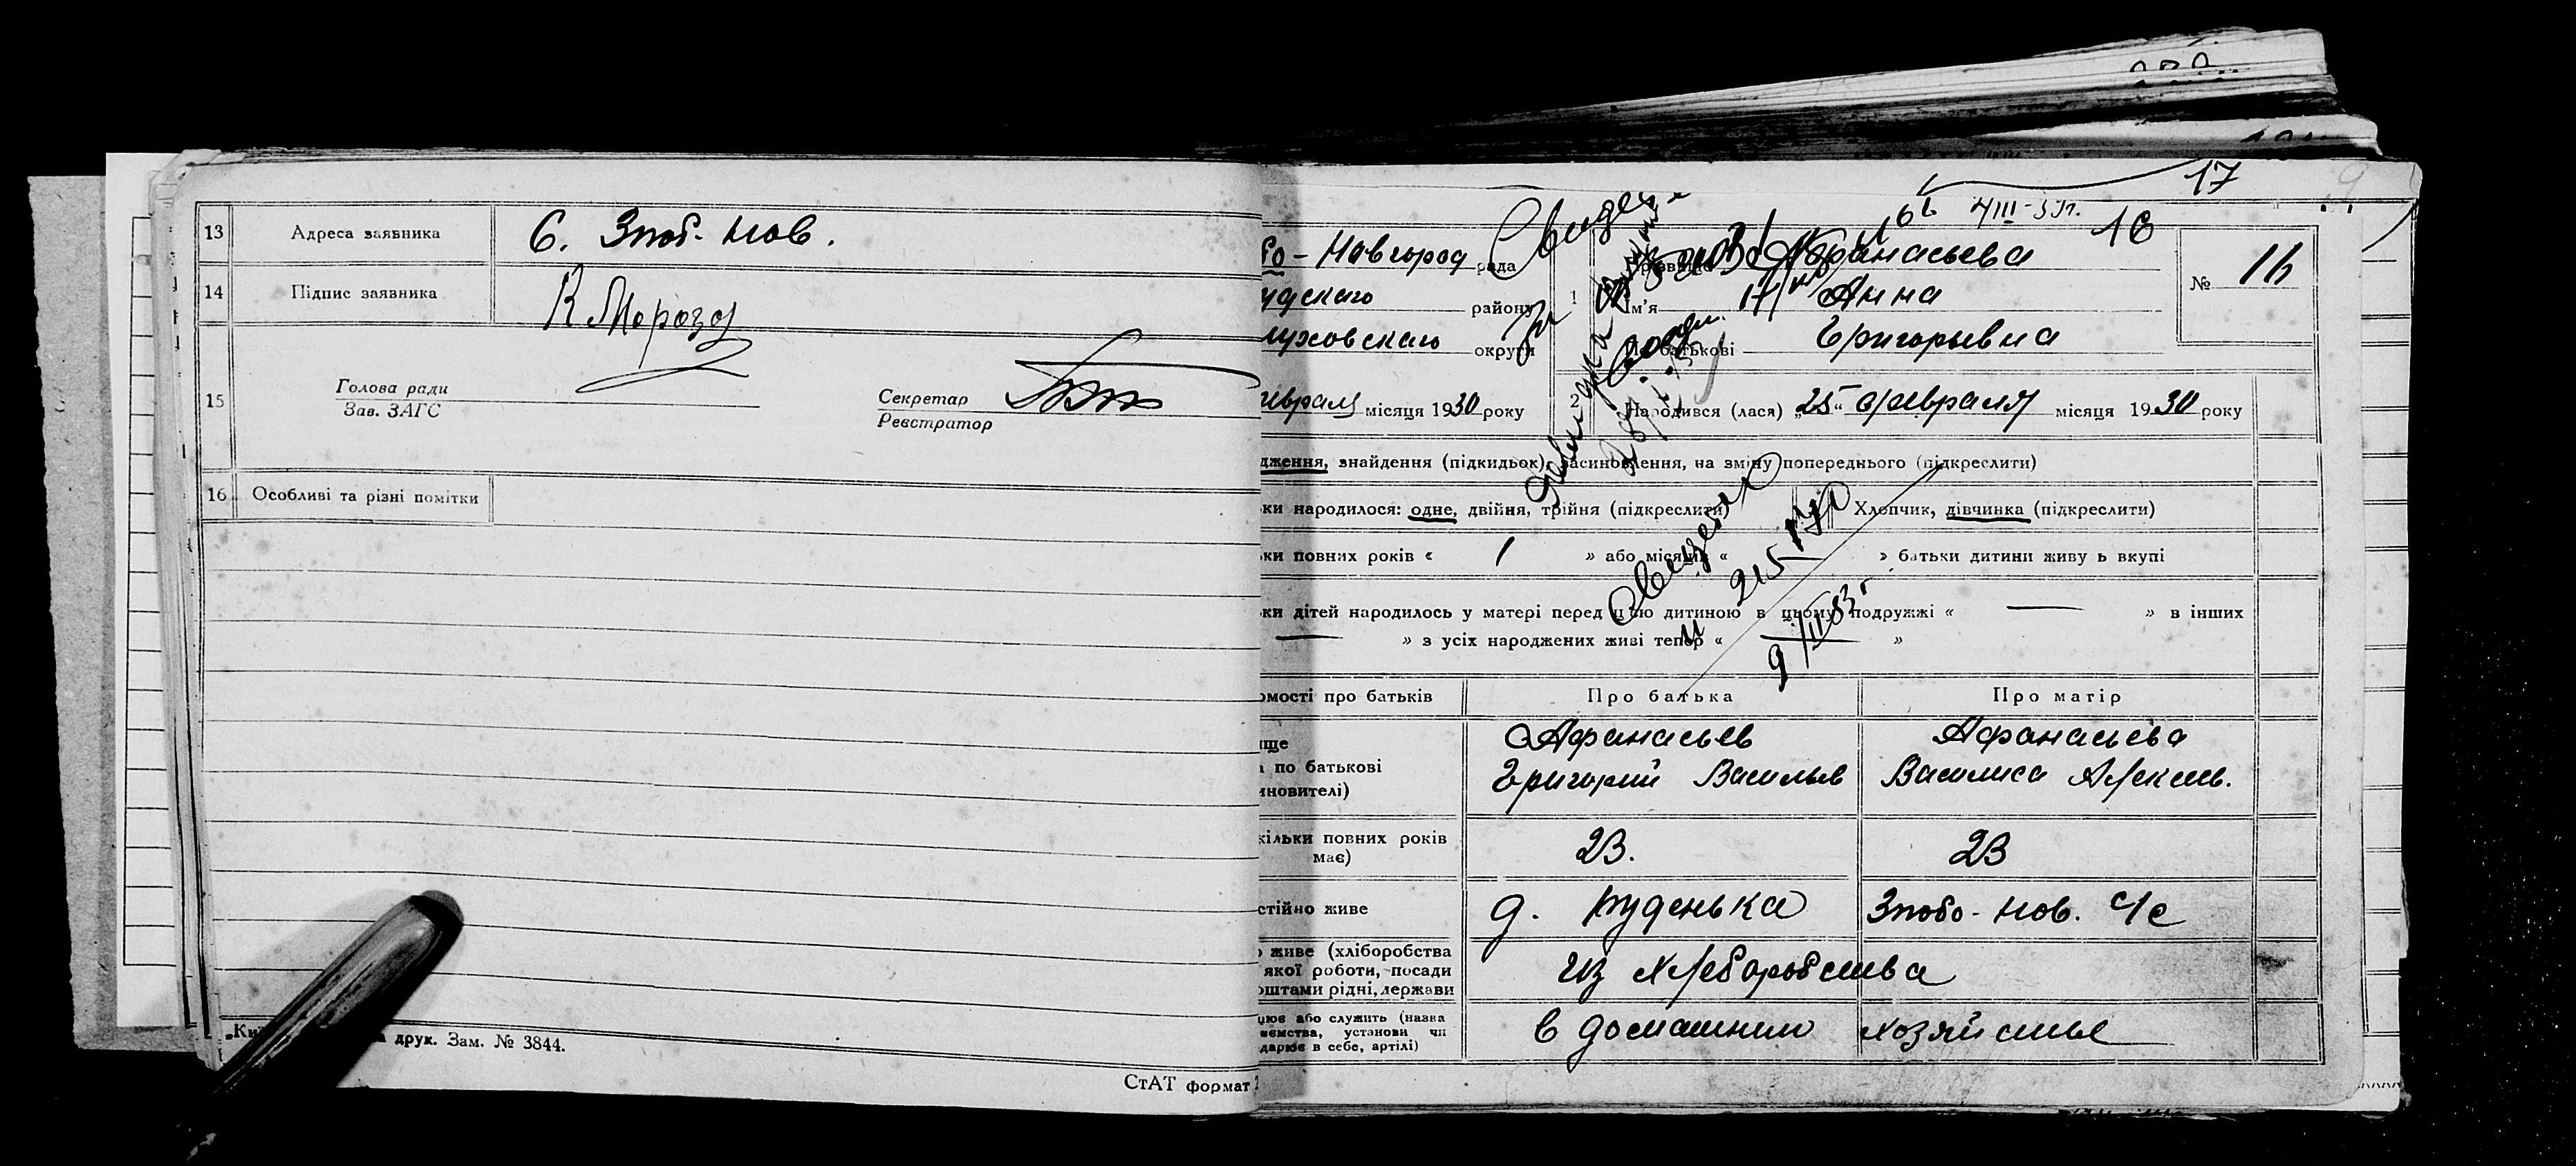 13 Адреса заявника С. Зноб. Нов.
14 Підпис заявника К Мороз
15 Голова ради
Зав. ЗАГС
Секретар
Реєстратор
16 Особливі та різні помітки
друк. Зам. № 3844.
СтАТ формат
17
16
бо-Новгород рада
удскаго району
луховскаго округи
евраля місяця 1930 року
1 Афанасьева
Ім'я Анна
По батькові Григорьевна
№ 16
2 Народився (лася) „25“ февраля місяця 1930 року
дження, знайдення (підкидьок), засиновлення, на зміну попереднього (підкреслити)
ки народилося: одне, двійня, трійня (підкреслити)
Хлопчик, дівчинка (підкреслити)
ки повних років « 1 » або місяців « » батьки дитини живуть вкупі
ки дітей народилось у матері перед цією дитиною в цьому подружжі « — » в інших
— » з усіх народжених живі тепер « »
9/III 83 г
омості про батьків
Про батька
Про матір
ище
по батькові
иновителі)
Афанасьев
Григорий Васильев
Афанасьева
Василиса Алексеев.
кільки повних років
має)
23.
23
стійно живе
д. Руденька
Знобо-Нов. с/с
живе (хліборобства
якої роботи, посади
оштами рідні, держави
из хлеборобства
цює або служить (назва
иємства, установи чи
дарює в себе, артілі)
в домашнем хозяйстве